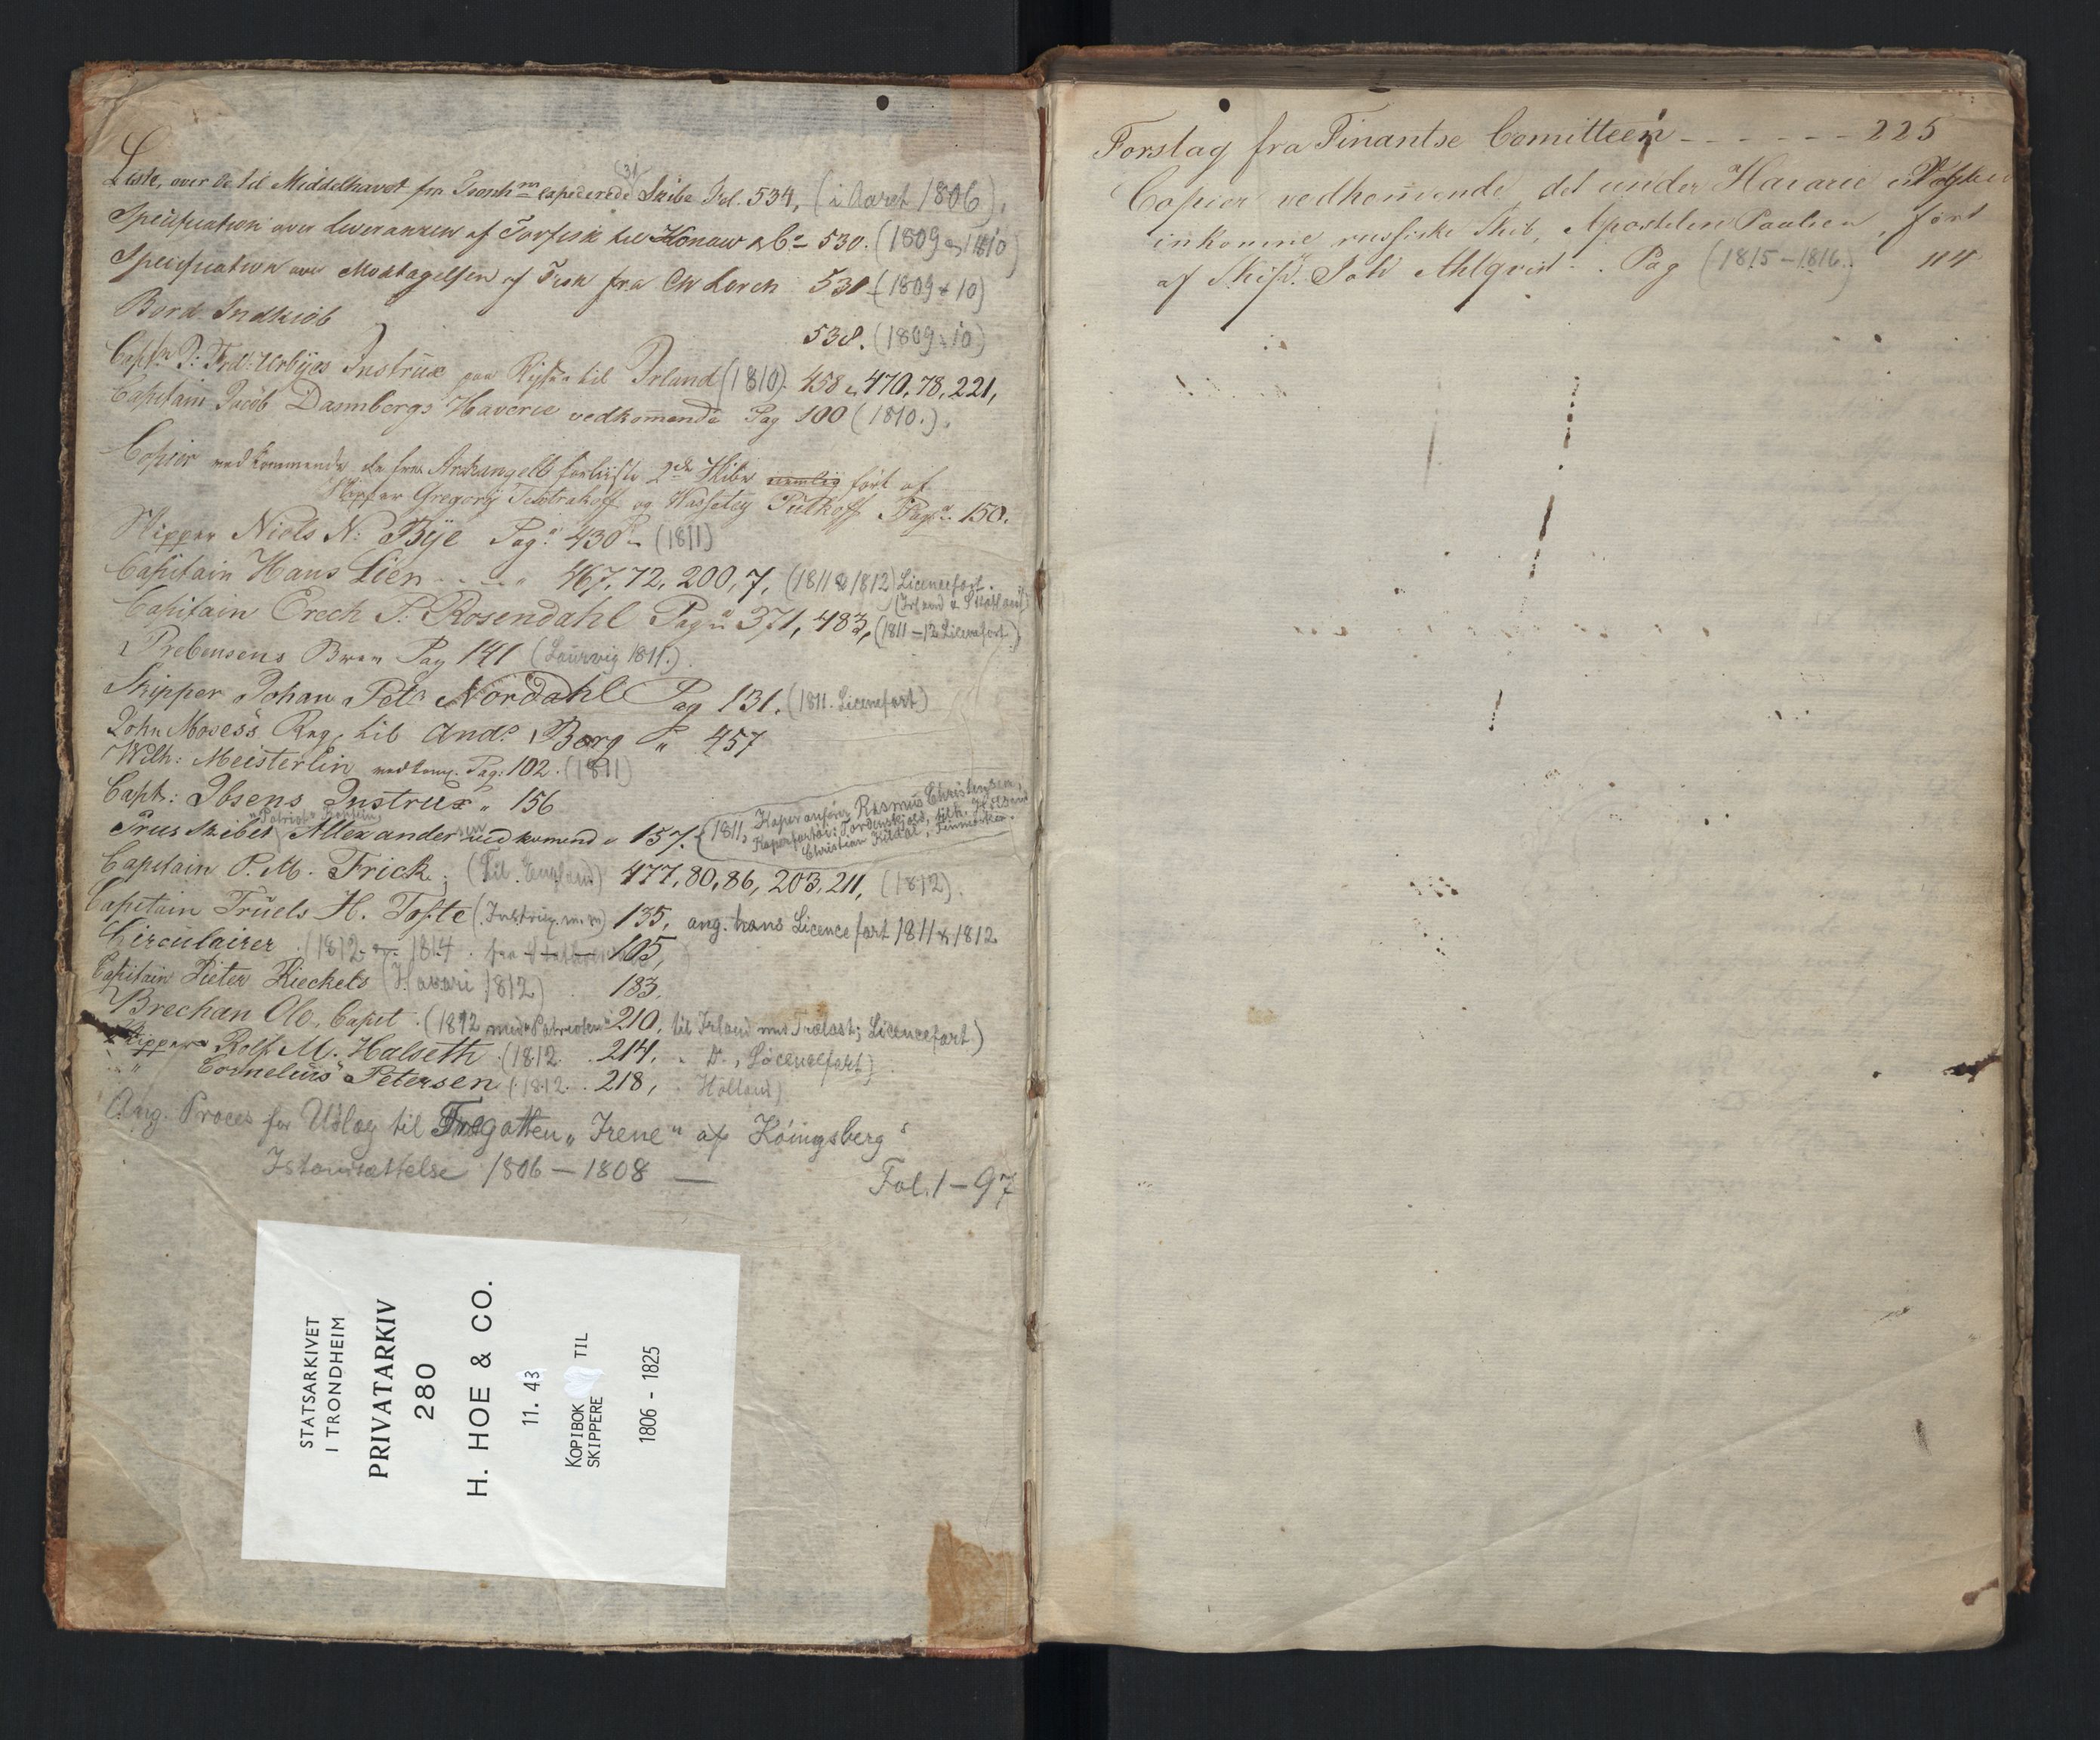 Liste, over de til Middelhavet fra Tronhm expederede (31) Skibe Fol. 534, (i Aaret 1806).
Specification over Leverancen af Törfisk til Konow & Co 530. (1809 og 1810)
Specification over Modtagelsen af Fisk fra Chr Lorch 531 (1809 & 10)
Bord Indkiöb 538. (1809 & 10)
Captn P: Fred: Urbÿes Instrux paa Rejsen til Irland (1810). 458 & 470, 78, 221,
Capitain Jacob Dannbergs Haverie vedkommende Pag 100 (1810.).
Copier vedkommende de fra Archangel forliiste 2de Skibe nemlig fört af
Skipper Gregorij og Wasseley Putkoff Pag: 150.
Skipper Niels N: Bÿe Pag: 430 - (1811)
Capitain Hans Lien - - - " 467, 72, 200, 7, (1811 & 1812) Licencefart.
(Irland & Skotland)
Capitain Erech P. Rosendahl Pag: 371, 483, (1811-12 Licencefart.)
Prebensens Brev Pag 141 (Laurvig 1811.)
Skipper Johan Petr Nordahl Pag 131. (1811. Licencefart)
John Moses's Reg. til Ands Berg " 457
Wilh: Meisterlin vedkom. Pag: 102. (1811)
Capt: Ibsens Instrux " 156
Priis Skibet Allexander vedkomend " 157. (1811, Kaperanförer Rasmus Christensen,
Kaperfartöi: Tordenskjold, tilh.
Christian Kildal, Finmarken.
Capitain P. M. Frick, (til England) 477, 80, 86, 203, 211, (1812).
Capitain Truels H. Tofte (Instrux m.m) 135, ang. hans Licencefart 1811 & 1812
Circulairer (1812 og 1814 fra 105,
Capitain Pieter Rieckels (Havari 1812) . 183.
Brechan Ol. Capt. (1812 med "Patrioten" 210, til Irland med Trælast; Licencefart.)
Skipper Rolf M. Halseth (1812. . 214, " Do, Licencefart)
" Cornelius Petersen (1812. . 218, . Holland)
Ang. Proces for Udlæg til Fregatten "Irene" af Köingsberg's
Istandsættelse 1806 - 1808 — Fol. 1 - 97
STATSARKIVET
I TRONDHEIM
PRIVATARKIV
280
H. HOE & CO.
11. 43
KOPIBOK TIL
SKIPPERE
1806 - 1825
Forslag fra Finantse Comitteen - - - - - - 225
Copier vedkommende det under Havarie
inkomne russiske Skib, Apostelen Paulien, fört
af Skipr. Joh Ahlqvist . . Pag (1815-1816.) 114